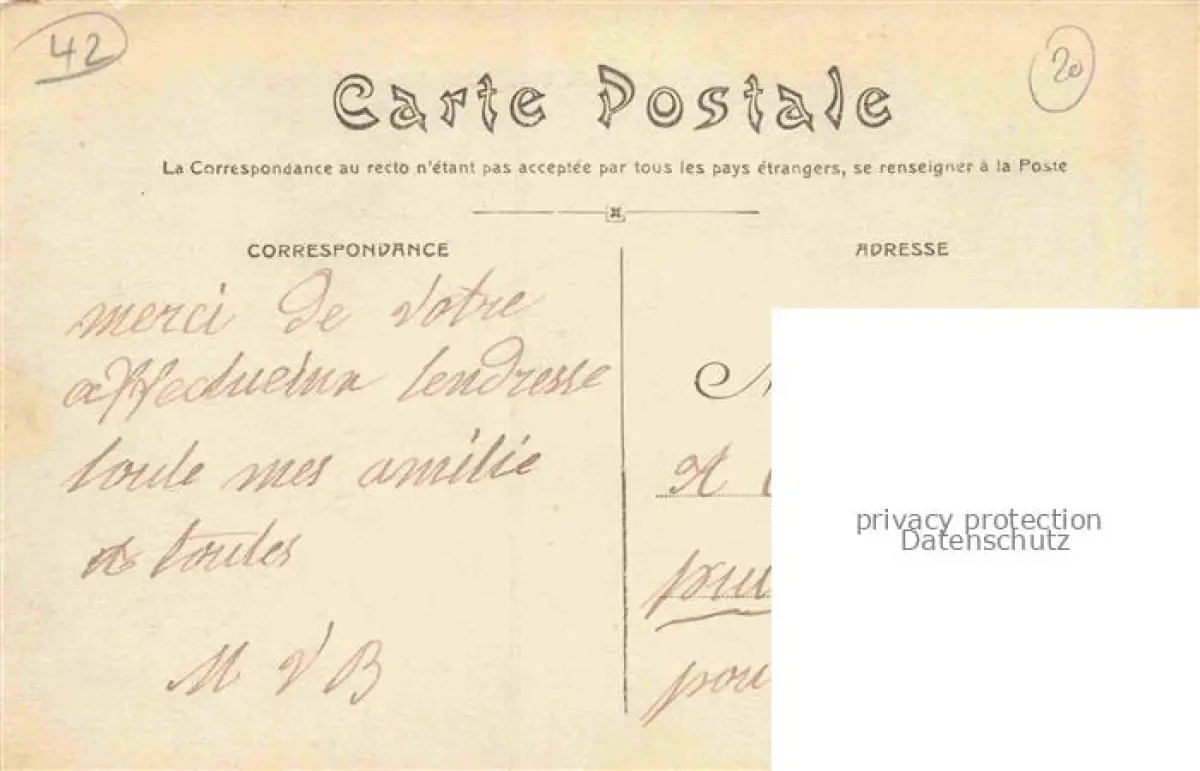 42
20
Carte Postale
La Correspondance au recto n'étant pas acceptée par tous les pays étrangers, se renseigner à la Poste
CORRESPONDANCE
ADRESSE
merci de votre
tendresse
toute mes amitié
a toutes
M V B
M
A
pou
privacy protection
Datenschutz